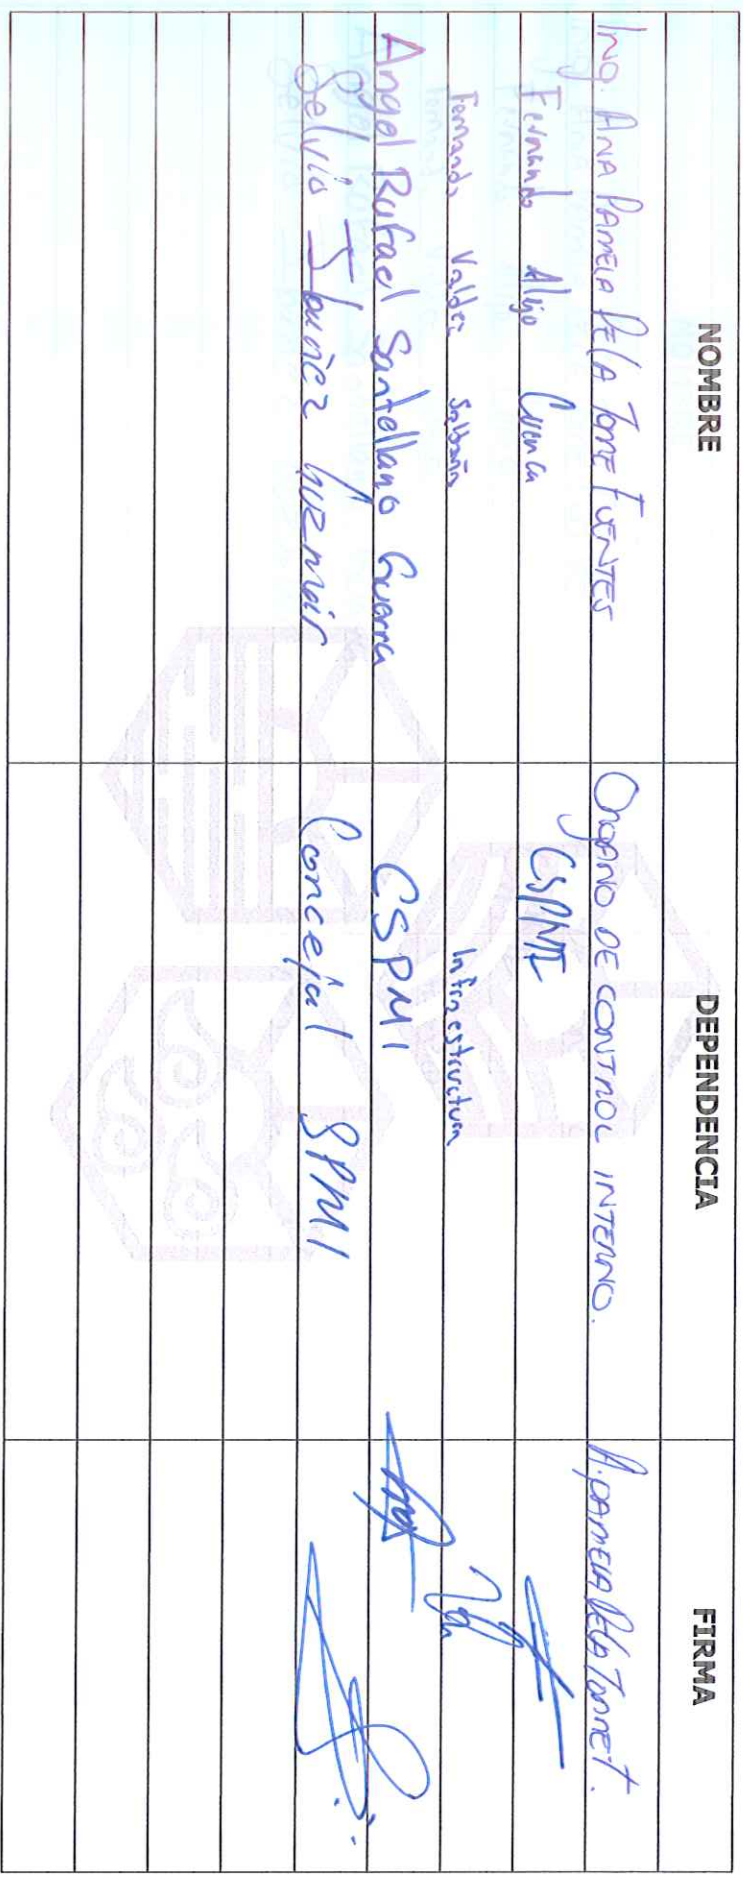 NOMBRE DEPENDENCIA FIRMA
Ing. ANA PAMELA DE LA TORRE FUENTES ORGANO DE CONTROL INTERNO. A. PAMELA DE LA TORRE F.
Fernando Alejo Cuenca CSPMI
Fernando Valdez Infraestructura
Angel Rafael Santellano Guerra CSPMI
Selvio Ibañez guzmán Concejal SPMI